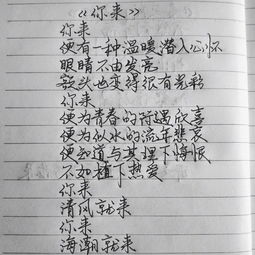 《你来》
你来
便有一种温暖潜入心怀
眼睛不由发亮
额头也变得很有光彩
你来
便为青春的际遇欣喜
便为似水的流年悲哀
便知道与其埋下悔恨
不如植下热爱
你来
清风就来
你来
海潮就来